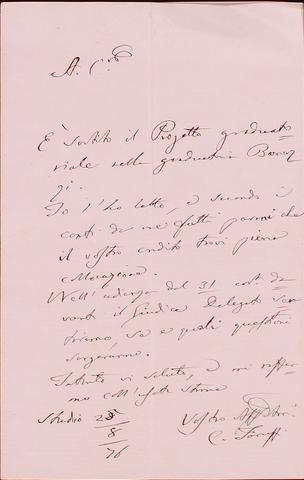 A. C.mo
È sortito il Progetto graduato=
riale nella graduatoria Barco
zi.
Io l'ho letto, e secondo i
conti da me fatti parmi che
il vostro credito trovi piena
Nell'udienza del 31 cort. da
vanti il Giudice Delegato sen
tiremo, se e quali questioni
sorgeranno.
Intanto vi saluto, e mi raffer
mo coll'usata stima
Studio 25/8/76
Vostro Aff.mo
C.